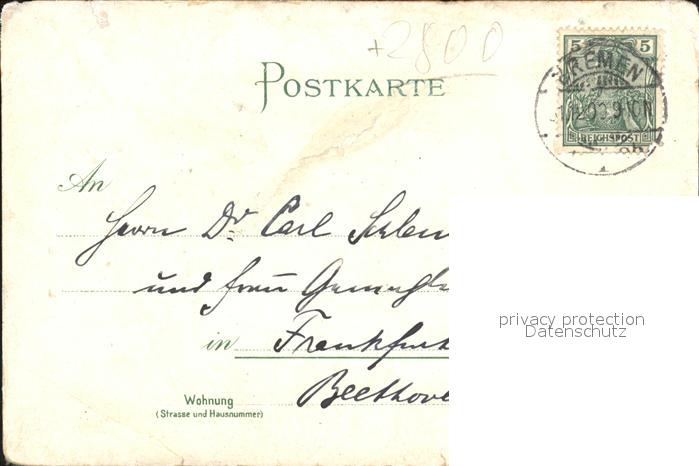 +2800
POSTKARTE
5 5
BREMEN
REICHSPOST
An
Herrn Dr. Carl
und Frau Gemahl
in Frankfurt
Beethove
Wohnung
(Strasse und Hausnummer)
privacy protection
Datenschutz